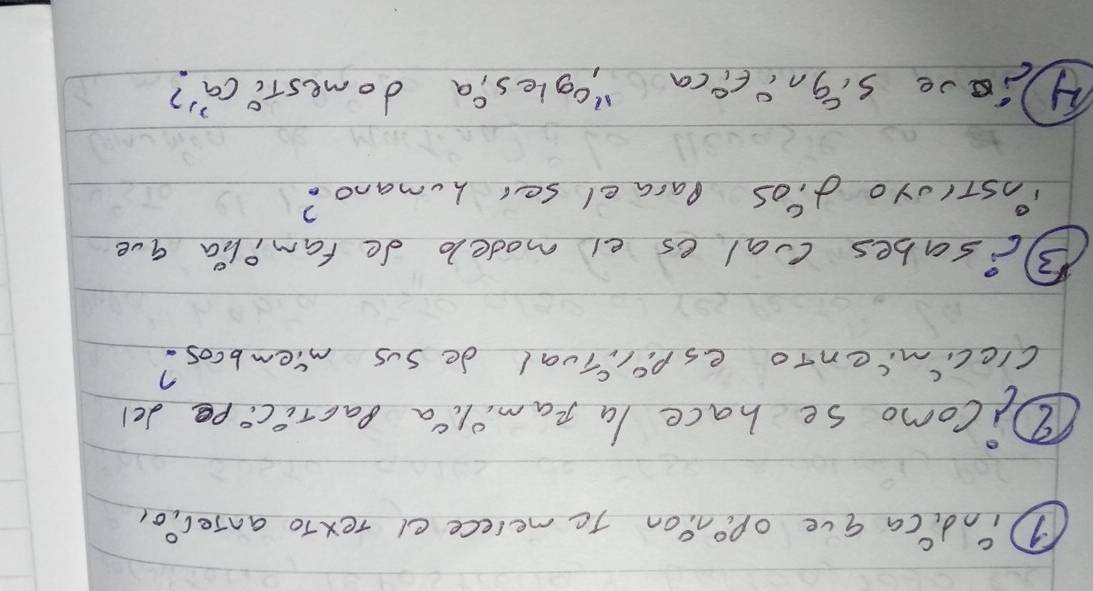 1 indica que opinion te merece el texto anterior
2 ¿Como se hace la familia participe del
crecimiento espiritual de sus miembros?
3 ¿sabes cual es el modelo de familia que
instituyo dios para el ser humano?
4 ¿que significa "iglesia domestica"?